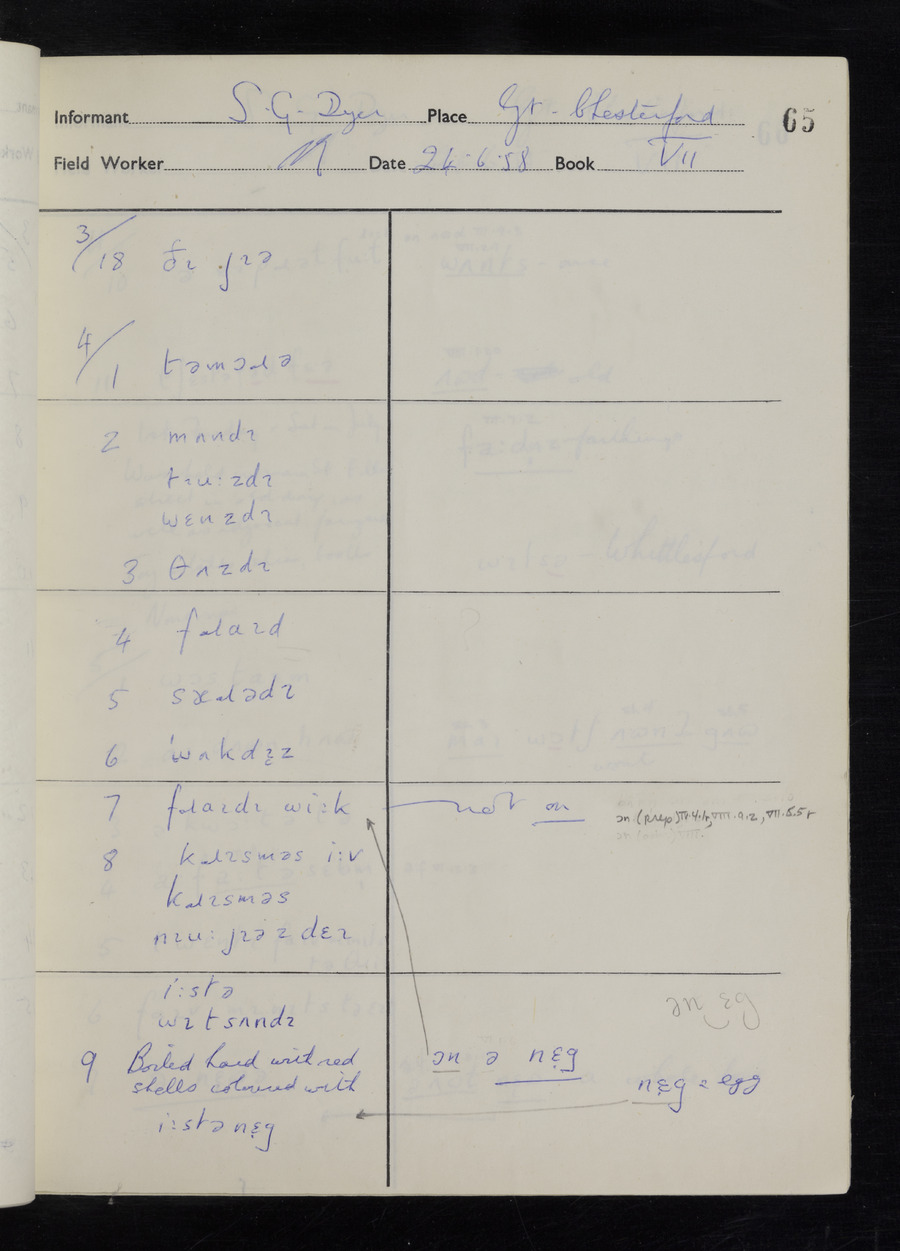 Informant S. G. Dyer Place Gt. Chesterford 65
Field Worker Date 24.6.58 Book VII
3/18 ðɪ jɪə
4/1 təmɔɹə
2 mʌndɪ
tɪu:zdɪ
wɛnzdɪ
3 θʌzdɪ
4 fɹaɪd
5 sæɹədɪ
6 ˈwʌkdɛ̣ɪz
7 fɹaɪdɪ wiːk not on
8 kɹɪsməs i:v
kɹɪsməs
nɪu: jɪəz dɛɪ
i:stə
wɪtsʌndɪ
ən ɛ̣g
9 Boiled hard with red
shells coloured with
ɔn ə nɛ̣g
nɛ̣g = egg
i:stə nɛ̣g